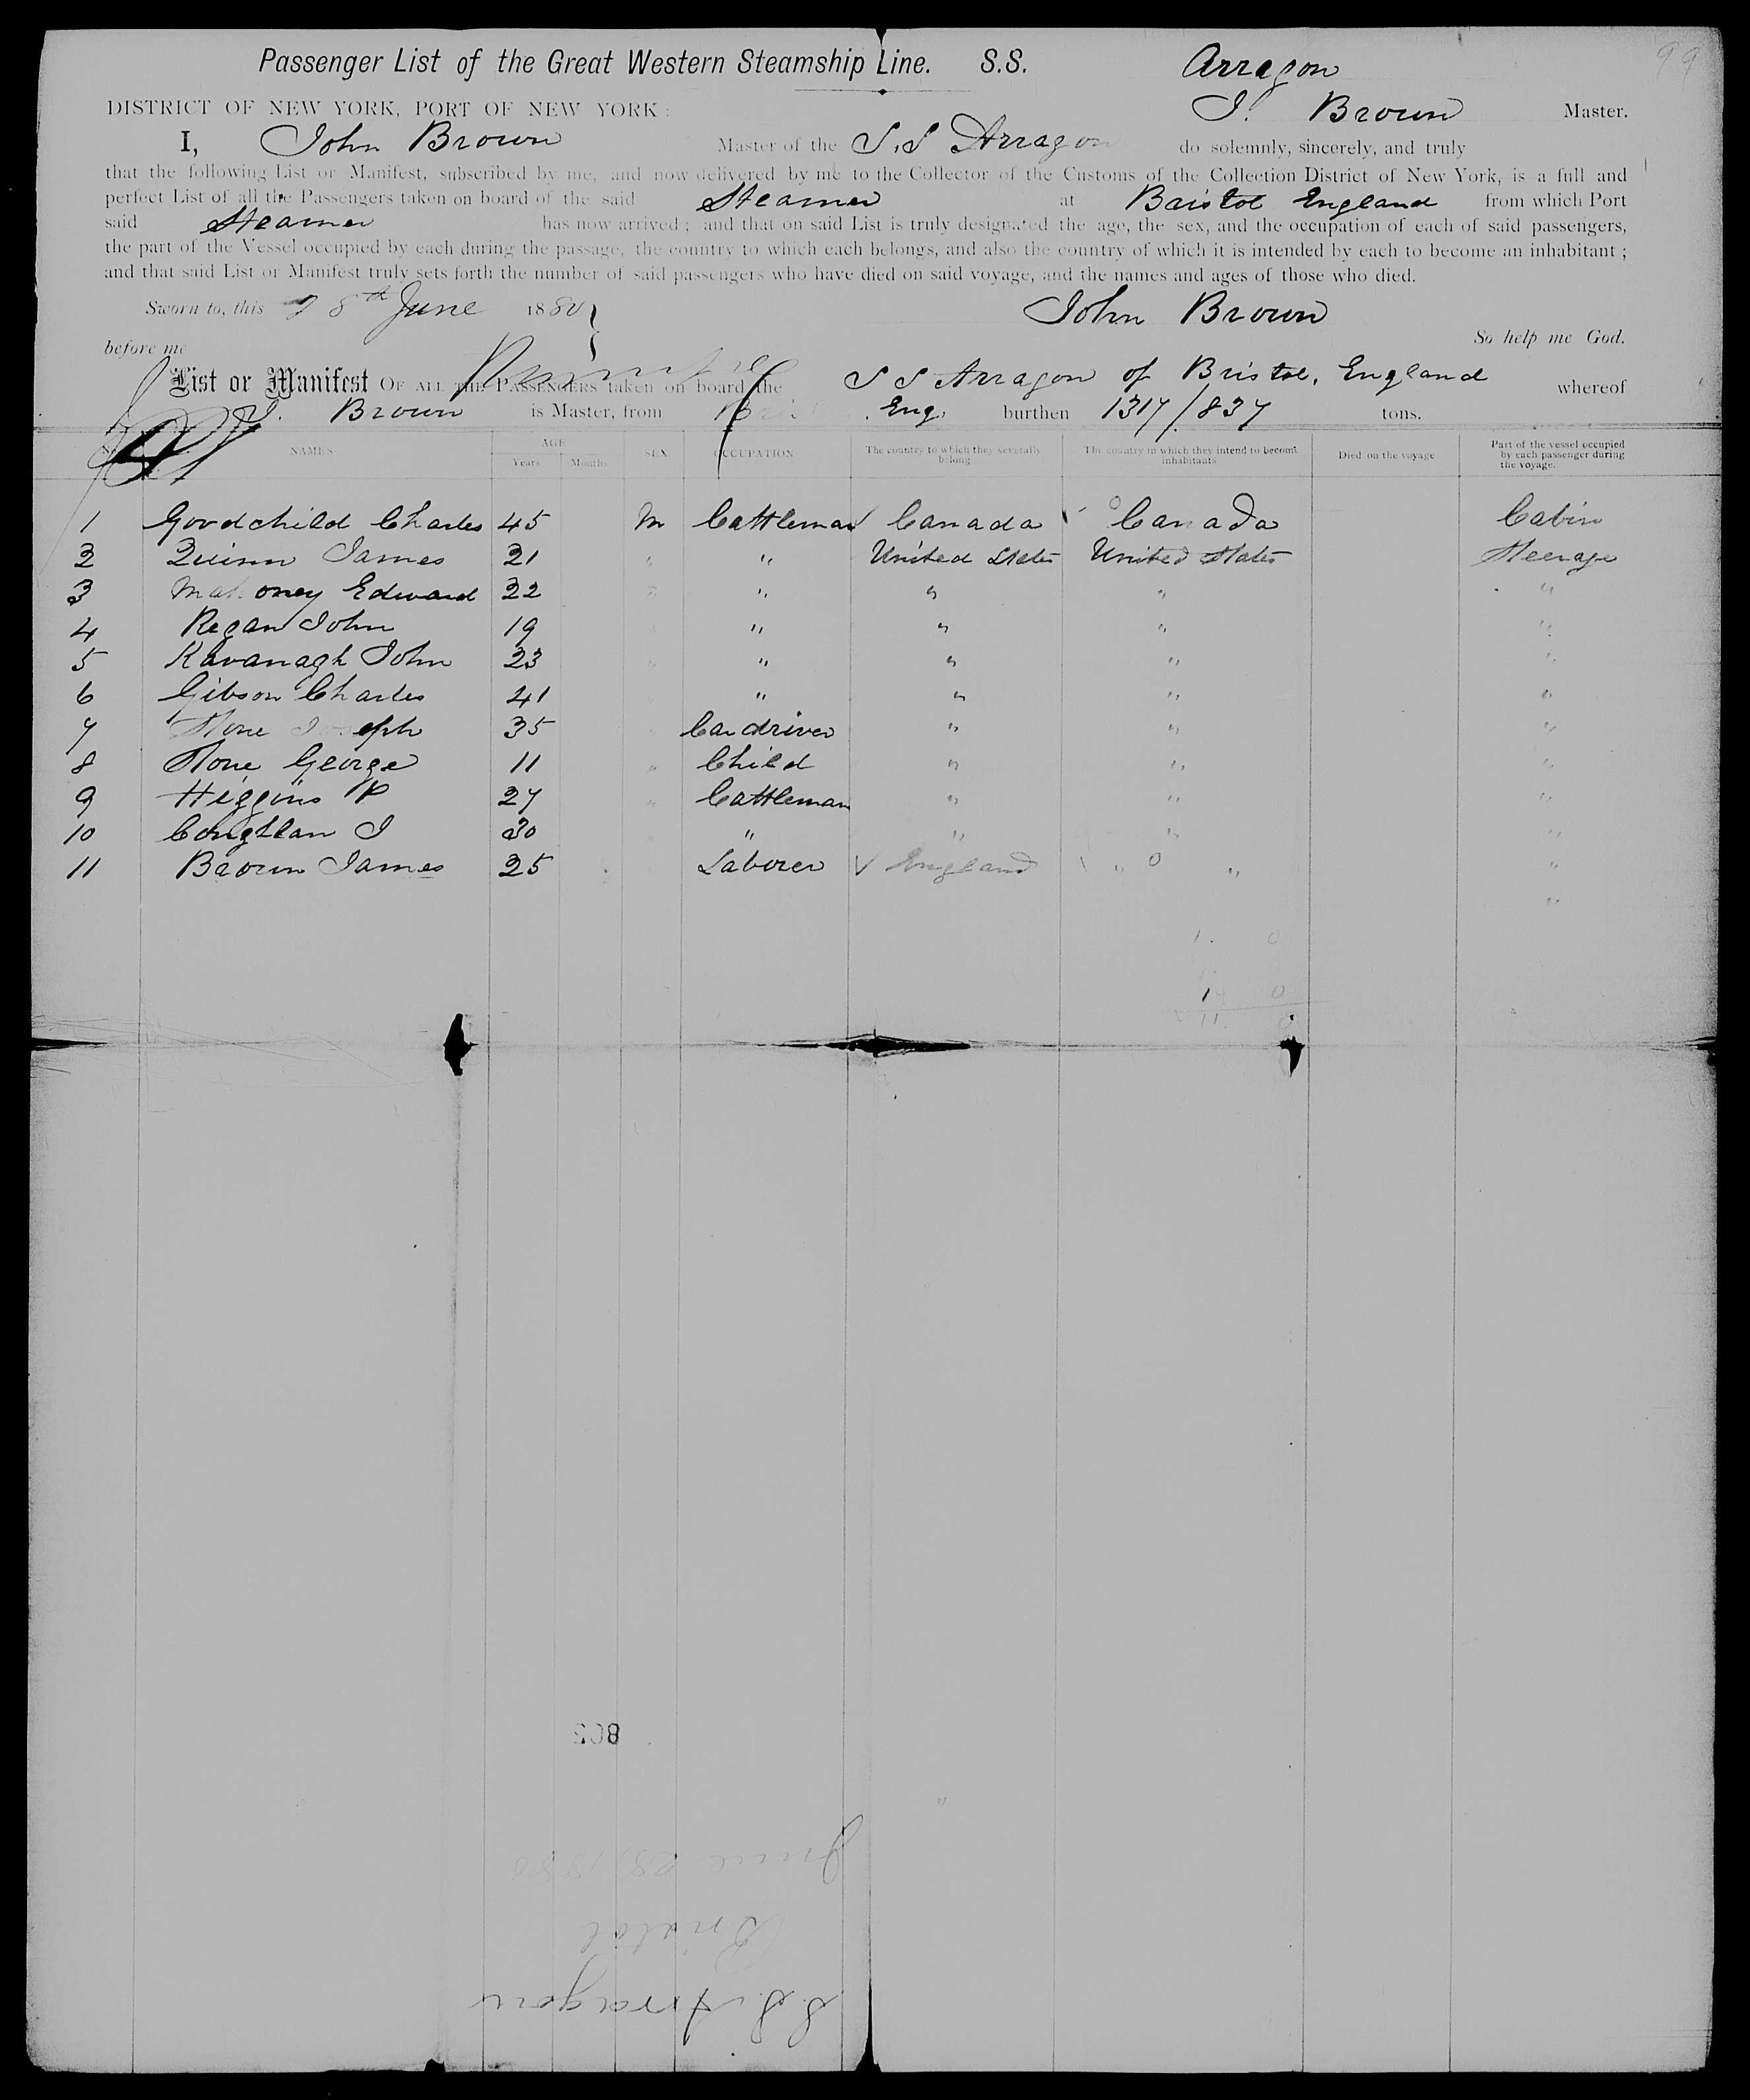 99
Passenger List of the Great Western Steamship Line. S.S. Arragon
DISTRICT OF NEW YORK, PORT OF NEW YORK: J. Brown Master.
I, John Brown Master of the S.S Arragon do solemnly, sincerely, and truly
that the following List or Manifest, subscribed by me, and now delivered by me to the Collector of the Customs of the Collection District of New York, is a full and
perfect List of all the Passengers taken on board of the said Steamer at Bristol England from which Port
said Steamer has now arrived; and that on said List is truly designated the age, the sex, and the occupation of each of said passengers,
the part of the Vessel occupied by each during the passage, the country to which each belongs, and also the country of which it is intended by each to become an inhabitant;
and that said List or Manifest truly sets forth the number of said passengers who have died on said voyage, and the names and ages of those who died.
Sworn to, this 28th June 1880 John Brown
before me So help me God.
List or Manifest OF ALL THE PASSENGERS taken on board the S S Arragon of Bristol, England whereof
J. Brown is Master, from Eng. burthen 1317/837 tons.
NAMES AGE Years Months SEX OCCUPATION The country to which they severally belong The country in which they intend to become inhabitants Died on the voyage Part of the vessel occupied by each passenger during the voyage.
1 Goodchild Charles 45 M Cattleman Canada Canada Cabin
2 Quinn James 21 " " United States United States Steerage
3 Mahoney Edward 22 " " " " "
4 Regan John 19 " " " "
5 Kavanagh John 23 " " " " "
6 Gibson Charles 41 " " " "
7 Stone Joseph 35 " Car driver " " "
8 Stone George 11 " Child " " "
9 Higgins P 27 " Cattleman " " "
10 Coughlan J 30 " " " "
11 Brown James 25 Laborer England " 0 " "
"
1. 0
1 0
11
802
June 28, 1880
Bristol
S.S. Arragon